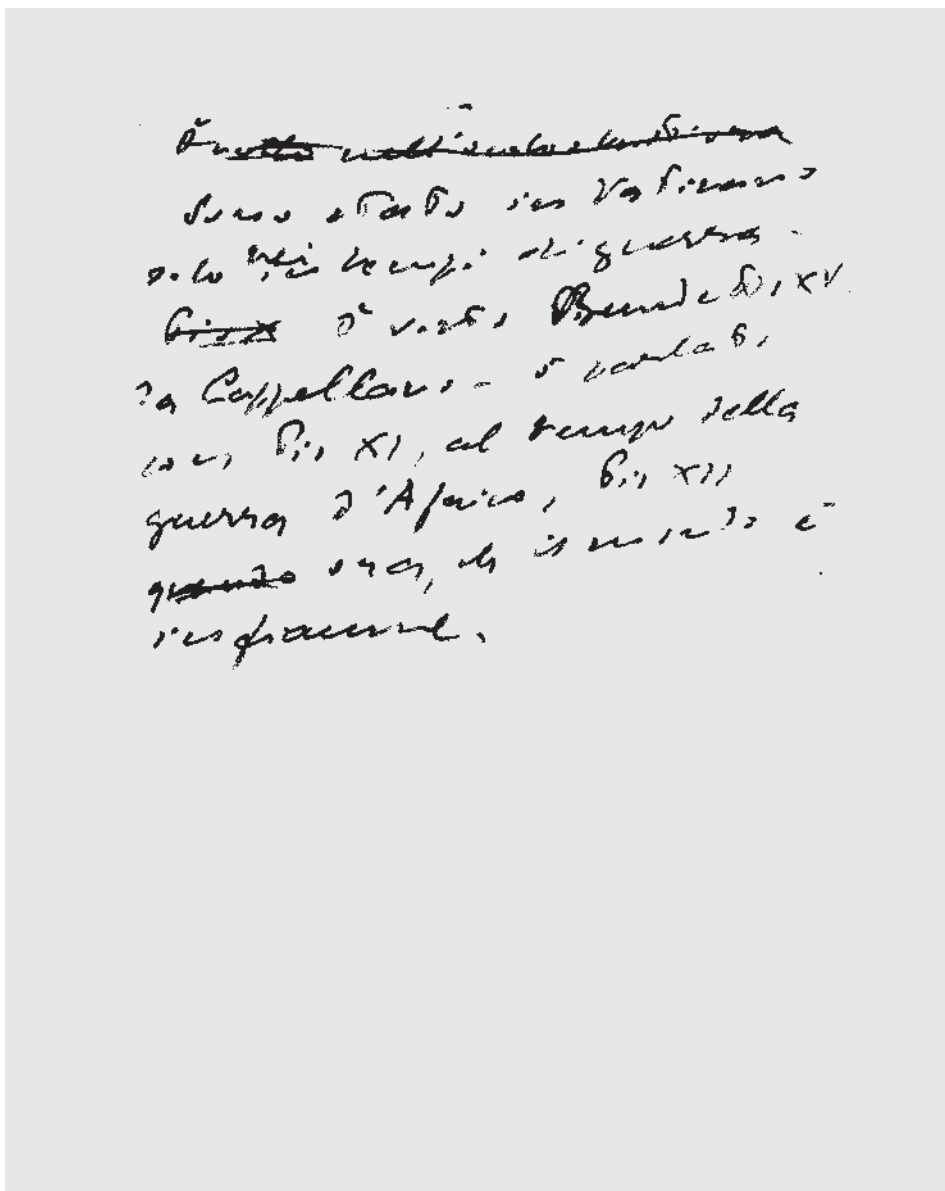 Sono stato in Vaticano
solo nei tempi di guerra.
Pio X ò visto Benedetto XV
da Cappellano - ò parlato
con Pio XI, al tempo della
guerra d'Africa, Pio XII
quando ora, che il mondo è
in fiamme.